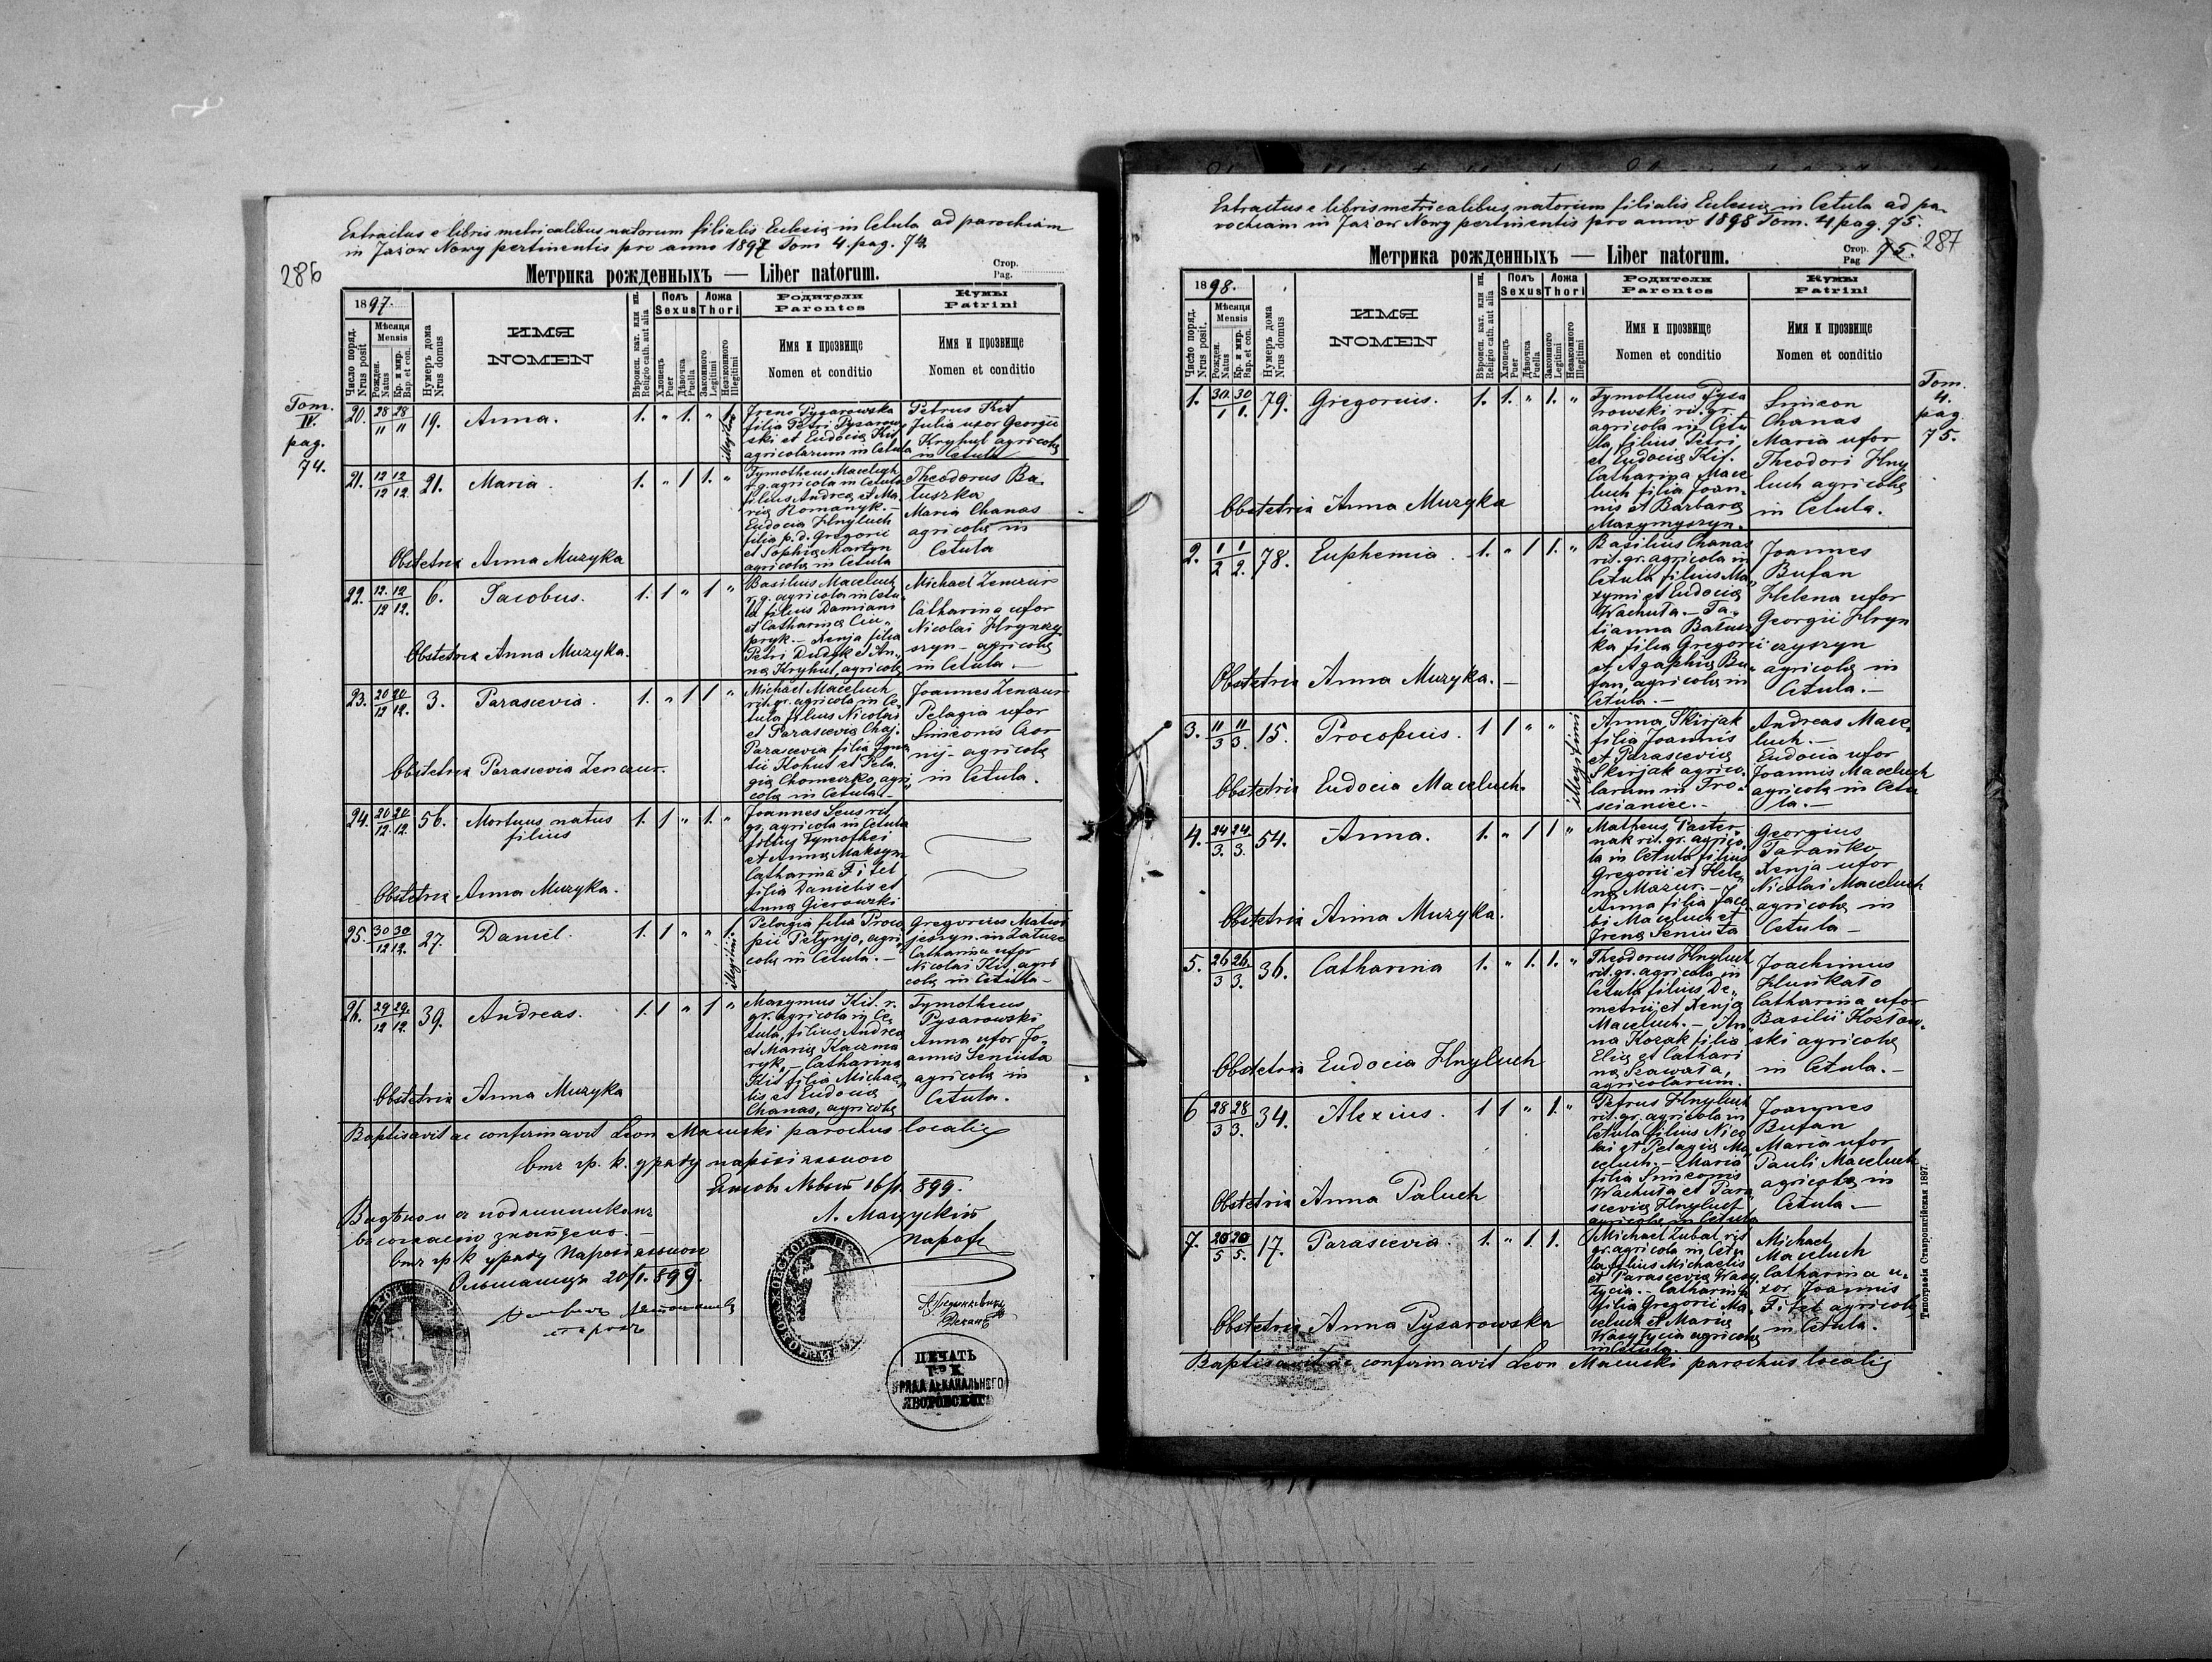 Extractus e libris metricalibus natorum filialis Eclesiæ in Cetula ad parochiam
in Jażow Nowy pertinentis pro anno 1897 Tom 4. pag. 74
286
Метрика рожденныхъ — Liber natorum.
Стор.
Pag.
1897.
Число поряд.
Nrus posit.
Мѣсяця
Mensis
Рожден.
Natus
Кр. и мир.
Bap. et con.
Нумеръ дома
Nrus domus
ИМЯ
NOMEN
Вѣроисп. кат. или ин.
Religio cath. aut alia
Полъ
Sexus
Хлопецъ
Puer
Дѣвочка
Puella
Ложа
Thori
Законного
Legitimi
Незаконного
Illegitimi
Родители
Parentes
Имя и прозвище
Nomen et conditio
Кумы
Patrini
Имя и прозвище
Nomen et conditio
Tom.
IV.
pag.
74.
20. 28/11 28/11 19. Anna. 1. " 1. " 1. illegitimi
Irene Pysarowska
filia Petri Pysarow
ski et Eudociæ Kit
agricolarum in Cetula
Petrus Kit
Julia uxor Georgii
Kryhul agricolæ
in Cetula
21. 12/12 12/12. 21. Maria. 1. " 1 1. "
Tymotheus Maceluch
r. g. agricola in Cetula
filius Andreæ et Ma
riæ Romanyk. —
Eudocia Hnyluch
filia p. d. Gregorii
et Sophiæ Martyn
agricolæ in Cetula
Theodorus Ba
tuszka
Maria Chanas
agricolæ in
Cetula
Obstetrix Anna Muzyka
22. 12/12 12/12. 6. Jacobus. 1. 1 " 1 "
Basilius Maceluch
r. g. agricola in Cetu
la filius Damiani
et Catharinæ Ciu
pryk. — Xenja filia
Petri Dudyk et An
næ Kryhul, agricolæ
Michael Zenczur
Catharina uxor
Nicolai Hrynczy
szyn — agricolæ
in Cetula. —
Obstetrix Anna Muzyka.
23. 20/12 20/12. 3. Parascevia. 1. " 1 1 "
Michael Maceluch
rit. gr. agricola in Ce
tula filius Nicolai
et Parasceviæ Chaj.
Parascevia filia Igna
tii Kohut et Pela
giæ Chomeczko, agri
colæ in Cetula. —
Joannes Zenczur
Pelagia uxor
Simeonis Czor
nij — agricolæ
in Cetula.
Obstetrix Parascevia Zenczur.
24. 20/12 20/12. 56. Mortuus natus
filius 1. 1 " 1. "
Joannes Seus rit.
gr. agricola in Cetula
filius Tymothei
et Annæ Maksym
Catharina Fitel
filia Danielis et
Annæ Gierowski
Obstetrix Anna Muzyka.
25. 30/12 30/12. 27. Daniel. 1. 1 " " 1. illegitimi.
Pelagia filia Proco
pii Petynjo, agri
colæ in Cetula. —
Gregorius
in
Catharina uxor
Nicolai Kit, agri
colæ in Cetula —
26. 29/12 29/12. 39. Andreas. 1. 1 " 1 "
Maxymus Kit. r.
gr. agricola in Ce
tula, filius Andreæ
et Mariæ Kaczma
ryk. — Catharina
Kit filia Michae
lis et Eudociæ
Chanas, agricolæ
Tymotheus
Pysarowski
Anna uxor Jo
annis Seniuta
agricolæ in
Cetula.
Obstetrix Anna Muzyka
Baptisavit ac confirmavit Leon Macuski parochus localis
Отъ гр. к. уряду парохіяльного
Яжовъ Новый 16/1. 899.
Л. Мацускій
парохъ
Видѣно и съ подлинникомъ
въ согласію знайдено. —
Отъ гр к уряду парохіяльного
Ольшаница 20/1. 899.
Деканъ
ПЕЧАТЬ
ГР. К.
УРЯДА ДЕКАНАЛЬНЕГО
ЯВОРОВСКОГО
Extractus e libris metricalibus natorum filialis Eclesiæ in Cetula ad pa
rochiam in Jażow Nowy pertinentis pro anno 1898 Tom. 4 pag. 75.
287
Метрика рожденныхъ — Liber natorum.
Стор.
Pag 75.
1898.
Число поряд.
Nrus posit.
Мѣсяця
Mensis
Рожден.
Natus
Кр. и мир.
Bap. et con.
Нумеръ дома
Nrus domus
ИМЯ
NOMEN
Вѣроисп. кат. или ин.
Religio cath. aut alia
Полъ
Sexus
Хлопецъ
Puer
Дѣвочка
Puella
Ложа
Thori
Законного
Legitimi
Незаконного
Illegitimi
Родители
Parentes
Имя и прозвище
Nomen et conditio
Кумы
Patrini
Имя и прозвище
Nomen et conditio
Tom.
4.
pag
75.
1. 30./1 30/1. 79. Gregorius. 1. 1. " 1. "
Tymotheus Pysa
rowski rit. gr.
agricola in Cetu
la, filius Petri
et Eudociæ Kit.
Catharina Mace
luch filia Joan
nis et Barbaræ
Maxymyszyn.
Simeon
Chanas
Maria uxor
Theodori Hny
luch agricolæ
in Cetula.
Obstetrix Anna Muzyka
2. 1/2 1/2. 78. Euphemia. 1. " 1 1. "
Basilius Chanas
rit. gr. agricola in
Cetula filius Ma
xymi et Eudociæ
Wachuta. — Ta
tianna Batusz
ka filia Gregorii
et Agaphiæ Bu
fan, agricolæ in
Cetula. —
Joannes
Bufan
Helena uxor
Georgii Hryn
czyszyn
agricolæ in
Cetula. —
Obstetrix Anna Muzyka. —
3. 11/3 11/3. 15. Procopius. 1 1 " " illegitimi
Anna Skirjak
filia Joannis
et Parasceviæ
Skirjak agrico
larum in Tro
scianiec. —
Andreas Mace
luch. —
Eudocia uxor
Joannis Maceluch
agricolæ in Cetu
la. —
Obstetrix Eudocia Maceluch.
4. 24/3. 24/3. 54. Anna. 1. " 1 1 "
Matheus Paster
nak rit. gr. agrico
la in Cetula filius
Gregorii et Hele
næ Mazur. —
Anna filia Jaco
bi Maceluch et
Irenæ Seniuta
Georgius
Tarańko
Xenja uxor
Nicolai Maceluch
agricolæ in
Cetula —
Obstetrix Anna Muzyka.
5. 26/3 26/3. 36. Catharina 1. " 1. 1. "
Theodorus Hnyluch
rit. gr. agricola in
Cetula filius De
metrii et Xenjæ
Maceluch. — An
na Kozak filia
Eliæ et Cathari
næ Szawała,
agricolarum.
Joachimus
Huńkało
Catharina uxor
Basilii Kozłow
ski agricolæ
in Cetula. —
Obstetrix Eudocia Hnyluch
6 28/3 28/3. 34. Alexius. 1 1 " 1. "
Petrus Hnyluch
rit. gr. agricola in
Cetula filius Nico
lai et Pelagiæ Ma
celuch. — Maria
filia Simeonis
Wachuta et Para
sceviæ Hnyluch
agricolæ in Cetula
Joannes
Bufan
Maria uxor
Pauli Maceluch
agricolæ in
Cetula. —
Obstetrix Anna Paluch
7. 20/5 20/5. 17. Parascevia. 1. " 1. 1.
Michael Zubal rit
gr. agricola in Cetu
la filius Michaelis
et Parasceviæ Wasy
tycia. — Catharina
filia Gregorii Ma
celuch et Mariæ
Wasytycia agricolæ
in Cetula.
Michael
Maceluch
Catharina u
xor Joannis
Fitel agricolæ
in Cetula.
Obstetrix Anna Pysarowska
Baptisavit ac confirmavit Leon Macuski parochus localis
Типографія Ставропигійская 1897.